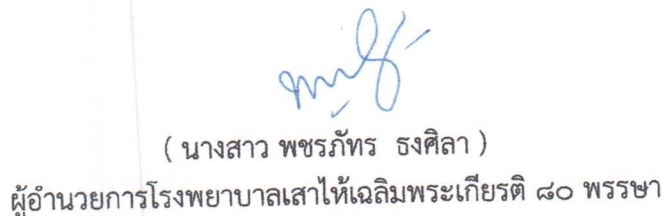 ( นางสาว พชรภัทร ธงศิลา )
ผู้อำนวยการโรงพยาบาลเสาไห้เฉลิมพระเกียรติ ๘๐ พรรษา